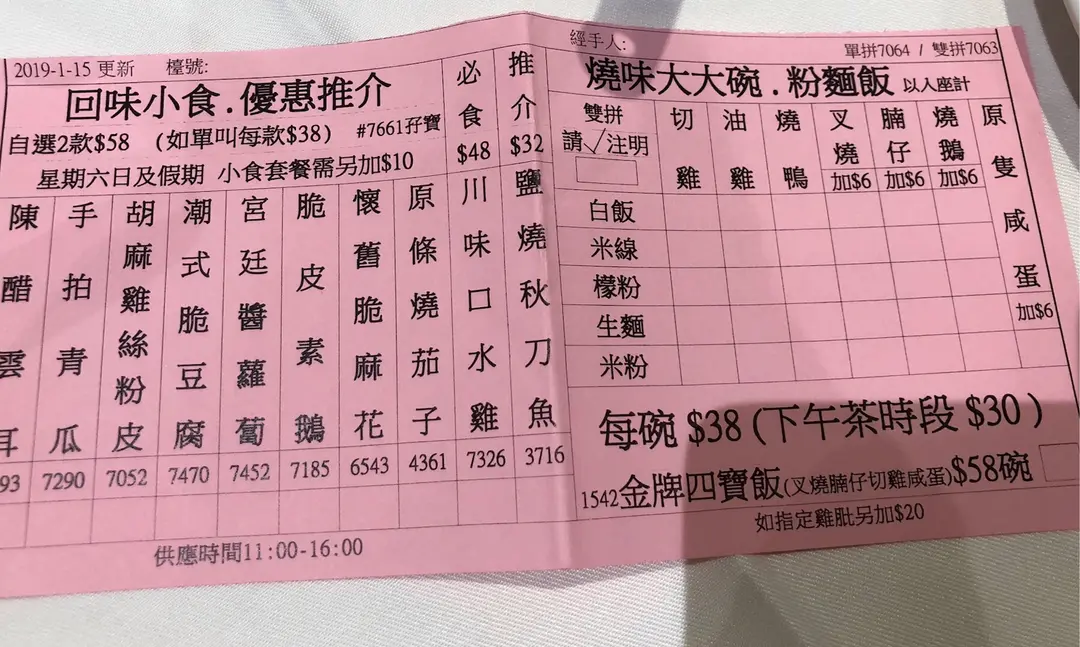 2019-1-15 更新 檯號:
回味小食.優惠推介
自選2款$58 (如單叫每款$38) #7661孖寶
星期六日及假期 小食套餐需另加$10
必食$48
推介$32
陳醋雲耳
手拍青瓜
胡麻雞絲粉皮
潮式脆豆腐
宮廷醬蘿蔔
脆皮素鵝
懷舊脆麻花
原條燒茄子
川味口水雞
鹽燒秋刀魚
93 7290 7052 7470 7452 7185 6543 4361 7326 3716
供應時間11:00-16:00
經手人: 單拼7064 / 雙拼7063
燒味大大碗.粉麵飯 以人座計
雙拼
請√注明
切雞
油雞
燒鴨
叉燒 加$6
腩仔 加$6
燒鵝 加$6
原隻咸蛋 加$6
白飯
米線
檬粉
生麵
米粉
每碗 $38 (下午茶時段 $30)
1542金牌四寶飯(叉燒腩仔切雞咸蛋)$58碗
如指定雞肶另加$20